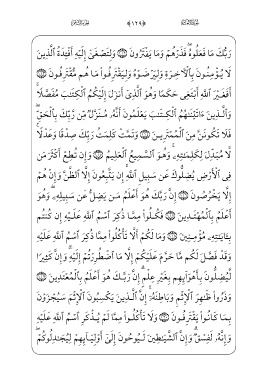 رَبُّكَ مَا فَعَلُوهُ فَذَرْهُمْ وَمَا يَفْتَرُونَ ۝ وَلِتَصْغَىٰ إِلَيْهِ أَفْـِٔدَةُ ٱلَّذِينَ
لَا يُؤْمِنُونَ بِٱلْـَٔاخِرَةِ وَلِيَرْضَوْهُ وَلِيَقْتَرِفُوا۟ مَا هُم مُّقْتَرِفُونَ ۝
أَفَغَيْرَ ٱللَّهِ أَبْتَغِى حَكَمًا وَهُوَ ٱلَّذِىٓ أَنزَلَ إِلَيْكُمُ ٱلْكِتَـٰبَ مُفَصَّلًا ۚ
وَٱلَّذِينَ ءَاتَيْنَـٰهُمُ ٱلْكِتَـٰبَ يَعْلَمُونَ أَنَّهُۥ مُنَزَّلٌ مِّن رَّبِّكَ بِٱلْحَقِّ ۖ
فَلَا تَكُونَنَّ مِنَ ٱلْمُمْتَرِينَ ۝ وَتَمَّتْ كَلِمَتُ رَبِّكَ صِدْقًا وَعَدْلًا ۚ
لَّا مُبَدِّلَ لِكَلِمَـٰتِهِۦ ۚ وَهُوَ ٱلسَّمِيعُ ٱلْعَلِيمُ ۝ وَإِن تُطِعْ أَكْثَرَ مَن
فِى ٱلْأَرْضِ يُضِلُّوكَ عَن سَبِيلِ ٱللَّهِ ۚ إِن يَتَّبِعُونَ إِلَّا ٱلظَّنَّ وَإِنْ هُمْ
إِلَّا يَخْرُصُونَ ۝ إِنَّ رَبَّكَ هُوَ أَعْلَمُ مَن يَضِلُّ عَن سَبِيلِهِۦ ۖ وَهُوَ
أَعْلَمُ بِٱلْمُهْتَدِينَ ۝ فَكُلُوا۟ مِمَّا ذُكِرَ ٱسْمُ ٱللَّهِ عَلَيْهِ إِن كُنتُم
بِـَٔايَـٰتِهِۦ مُؤْمِنِينَ ۝ وَمَا لَكُمْ أَلَّا تَأْكُلُوا۟ مِمَّا ذُكِرَ ٱسْمُ ٱللَّهِ عَلَيْهِ
وَقَدْ فَصَّلَ لَكُم مَّا حَرَّمَ عَلَيْكُمْ إِلَّا مَا ٱضْطُرِرْتُمْ إِلَيْهِ ۗ وَإِنَّ كَثِيرًا
لَّيُضِلُّونَ بِأَهْوَآئِهِم بِغَيْرِ عِلْمٍ ۗ إِنَّ رَبَّكَ هُوَ أَعْلَمُ بِٱلْمُعْتَدِينَ ۝
وَذَرُوا۟ ظَـٰهِرَ ٱلْإِثْمِ وَبَاطِنَهُۥٓ ۚ إِنَّ ٱلَّذِينَ يَكْسِبُونَ ٱلْإِثْمَ سَيُجْزَوْنَ
بِمَا كَانُوا۟ يَقْتَرِفُونَ ۝ وَلَا تَأْكُلُوا۟ مِمَّا لَمْ يُذْكَرِ ٱسْمُ ٱللَّهِ عَلَيْهِ
وَإِنَّهُۥ لَفِسْقٌ ۗ وَإِنَّ ٱلشَّيَـٰطِينَ لَيُوحُونَ إِلَىٰٓ أَوْلِيَآئِهِمْ لِيُجَـٰدِلُوكُمْ ۖ